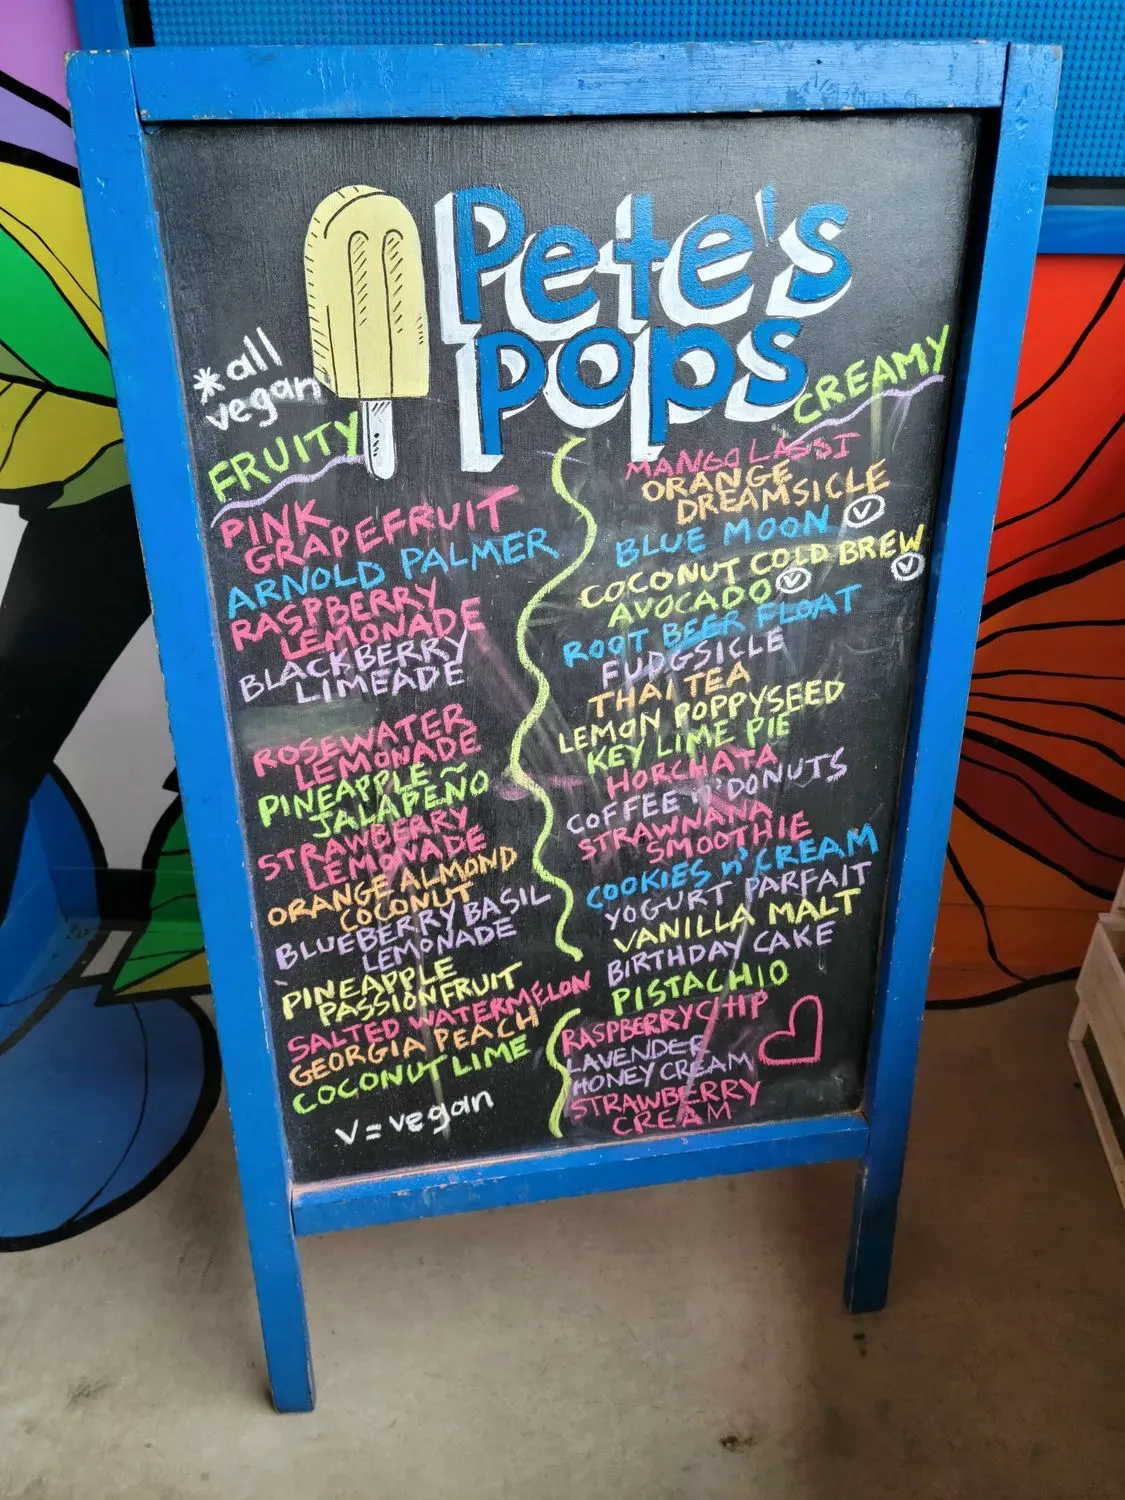 Pete's
pops
*all
vegan
FRUITY
PINK
GRAPEFRUIT
ARNOLD PALMER
RASPBERRY
LEMONADE
BLACKBERRY
LIMEADE
ROSEWATER
LEMONADE
PINEAPPLE ~
JALAPEÑO
STRAWBERRY
LEMONADE
ORANGE ALMOND
COCONUT
BLUEBERRY BASIL
LEMONADE
PINEAPPLE
PASSIONFRUIT
SALTED WATERMELON
GEORGIA PEACH
COCONUT LIME
V = vegan
CREAMY
MANGO LASSI
ORANGE
DREAMSICLE
BLUE MOON V
COCONUT COLD BREW V
AVOCADO V
ROOT BEER FLOAT
FUDGSICLE
THAI TEA
LEMON POPPYSEED
KEY LIME PIE
HORCHATA
COFFEE n' DONUTS
STRAWNANA
SMOOTHIE
COOKIES n' CREAM
YOGURT PARFAIT
VANILLA MALT
BIRTHDAY CAKE
PISTACHIO
RASPBERRY CHIP
LAVENDER
HONEY CREAM
STRAWBERRY
CREAM